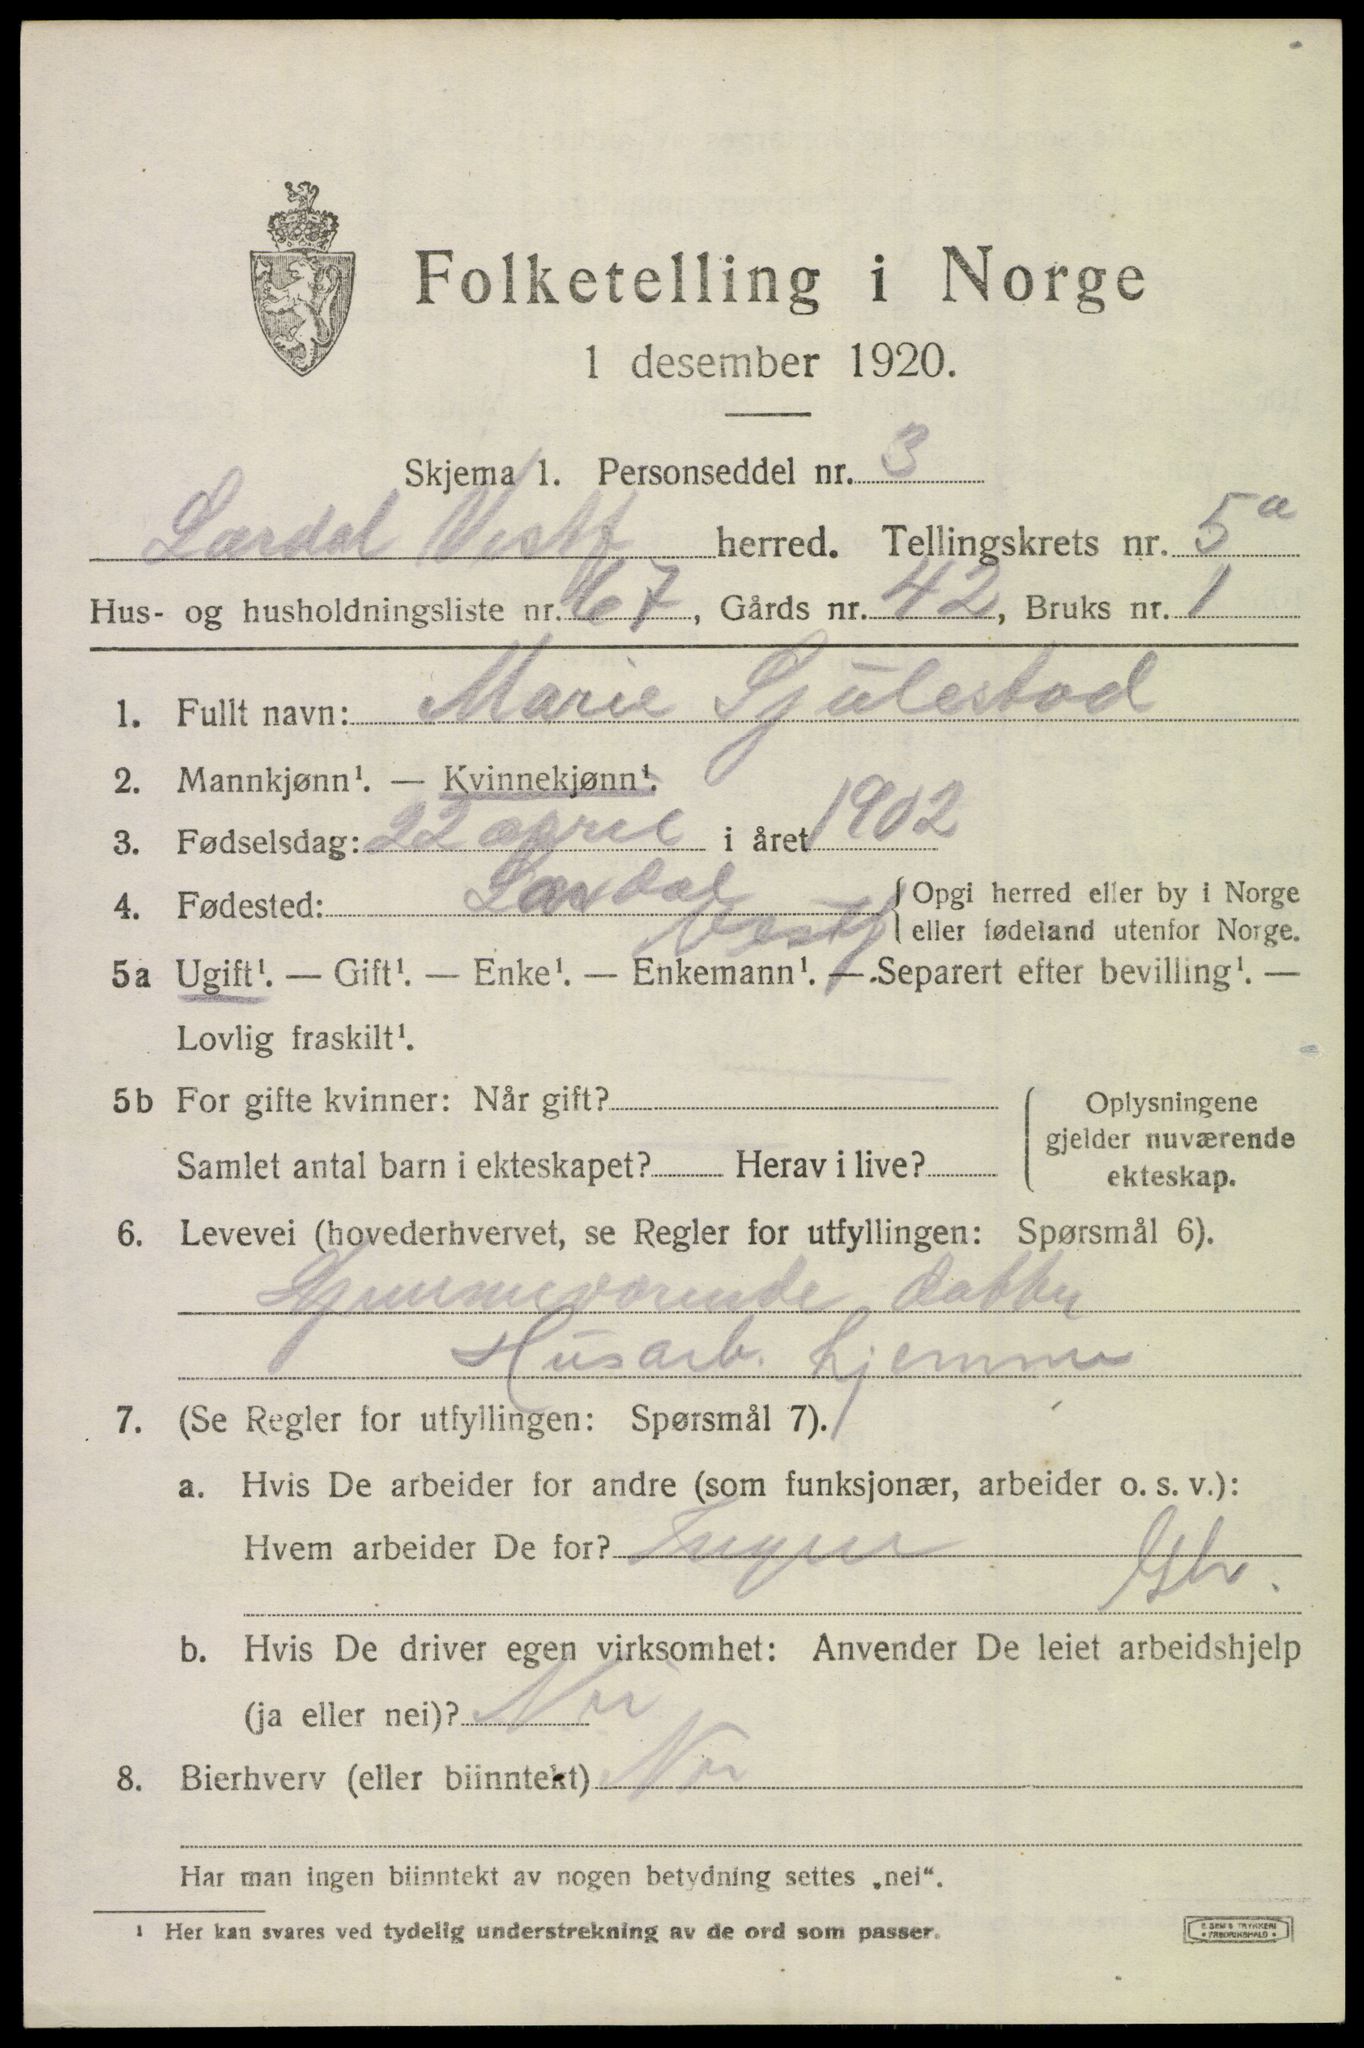 Folketelling i Norge
1 desember 1920.
Skjema 1. Personseddel nr. 3
Lardal Vestf herred. Tellingskrets nr. 5a
Hus- og husholdningsliste nr. 67, Gårds nr. 42, Bruks nr. 1
1. Fullt navn: Marie Gjulestad
2. Mannkjønn¹. — Kvinnekjønn¹.
3. Fødselsdag: 22 april i året 1902
4. Fødested: Lardal Vestf
Opgi herred eller by i Norge
eller fødeland utenfor Norge.
5a Ugift¹. — Gift¹. — Enke¹. — Enkemann¹. — Separert efter bevilling¹. —
Lovlig fraskilt¹.
5b For gifte kvinner: Når gift?
Samlet antal barn i ekteskapet? Herav i live?
Oplysningene
gjelder nuværende
ekteskap.
6. Levevei (hovederhvervet, se Regler for utfyllingen: Spørsmål 6).
Hjemmeværende datter
Husarb. hjemme
7. (Se Regler for utfyllingen: Spørsmål 7).
a. Hvis De arbeider for andre (som funksjonær, arbeider o. s. v.):
Hvem arbeider De for? Ingen
b. Hvis De driver egen virksomhet: Anvender De leiet arbeidshjelp
(ja eller nei)? Nei
8. Bierhverv (eller biinntekt) Nei
Har man ingen biinntekt av nogen betydning settes „nei“.
¹ Her kan svares ved tydelig understrekning av de ord som passer.
E. SEM'S TRYKKERI
• FREDRIKSHALD •